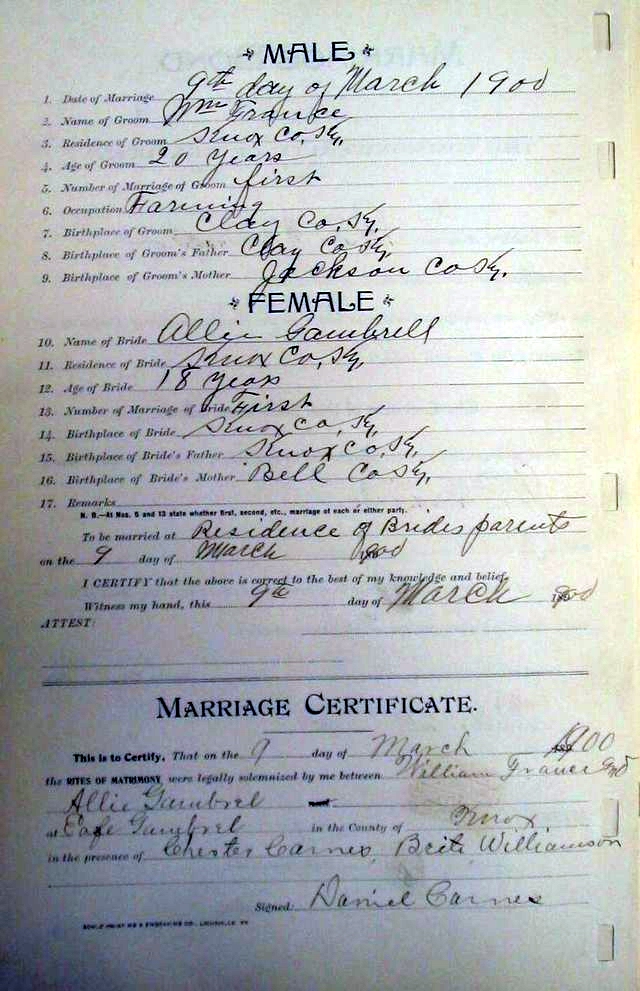 MALE
1. Date of Marriage 9th day of March 1900
2. Name of Groom Wm France
3. Residence of Groom Knox Co, Ky,
4. Age of Groom 20 years
5. Number of Marriage of Groom first
6. Occupation Farming
7. Birthplace of Groom Clay Co, Ky,
8. Birthplace of Groom's Father Clay Co Ky,
9. Birthplace of Groom's Mother Jackson Co Ky,
FEMALE
10. Name of Bride Allie Gambrell
11. Residence of Bride Knox Co, Ky,
12. Age of Bride 18 Years
13. Number of Marriage of Bride First
14. Birthplace of Bride Knox Co, Ky,
15. Birthplace of Bride's Father Knox Co, Ky,
16. Birthplace of Bride's Mother Bell Co Ky,
17. Remarks
N. B.—At Nos. 5 and 13 state whether first, second, etc., marriage of each or either party.
To be married at Residence of Brides parents
on the 9 day of March 1900
I CERTIFY that the above is correct to the best of my knowledge and belief.
Witness my hand, this 9th day of March 1900
ATTEST:
MARRIAGE CERTIFICATE.
This is to Certify, That on the 9 day of March 1900
the RITES OF MATRIMONY were legally solemnized by me between William France and
Allie Gambrel
at Gambrel in the County of Knox
in the presence of Chester Carnes, Williamson
Signed: Daniel Carnes